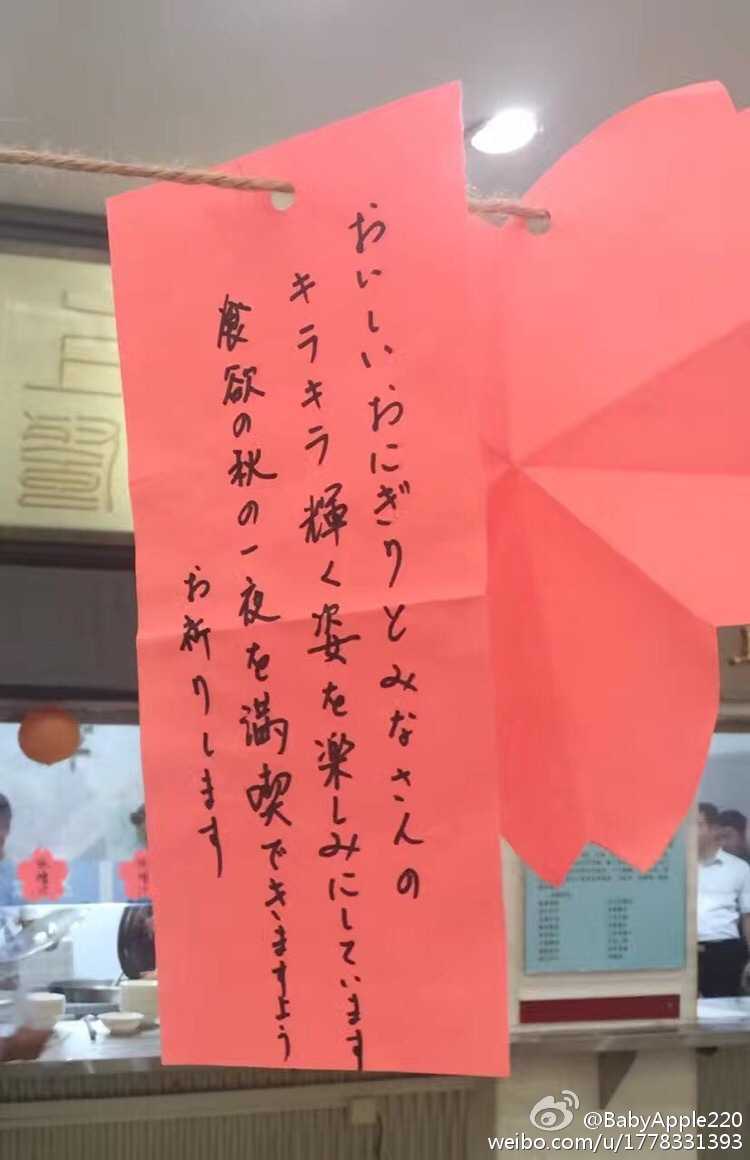 おいしいおにぎりとみなさんの
キラキラ輝く姿を楽しみにしています
食欲の秋の一夜を満喫できますよう
お祈りします
@BabyApple220
weibo.com/u/1778331393